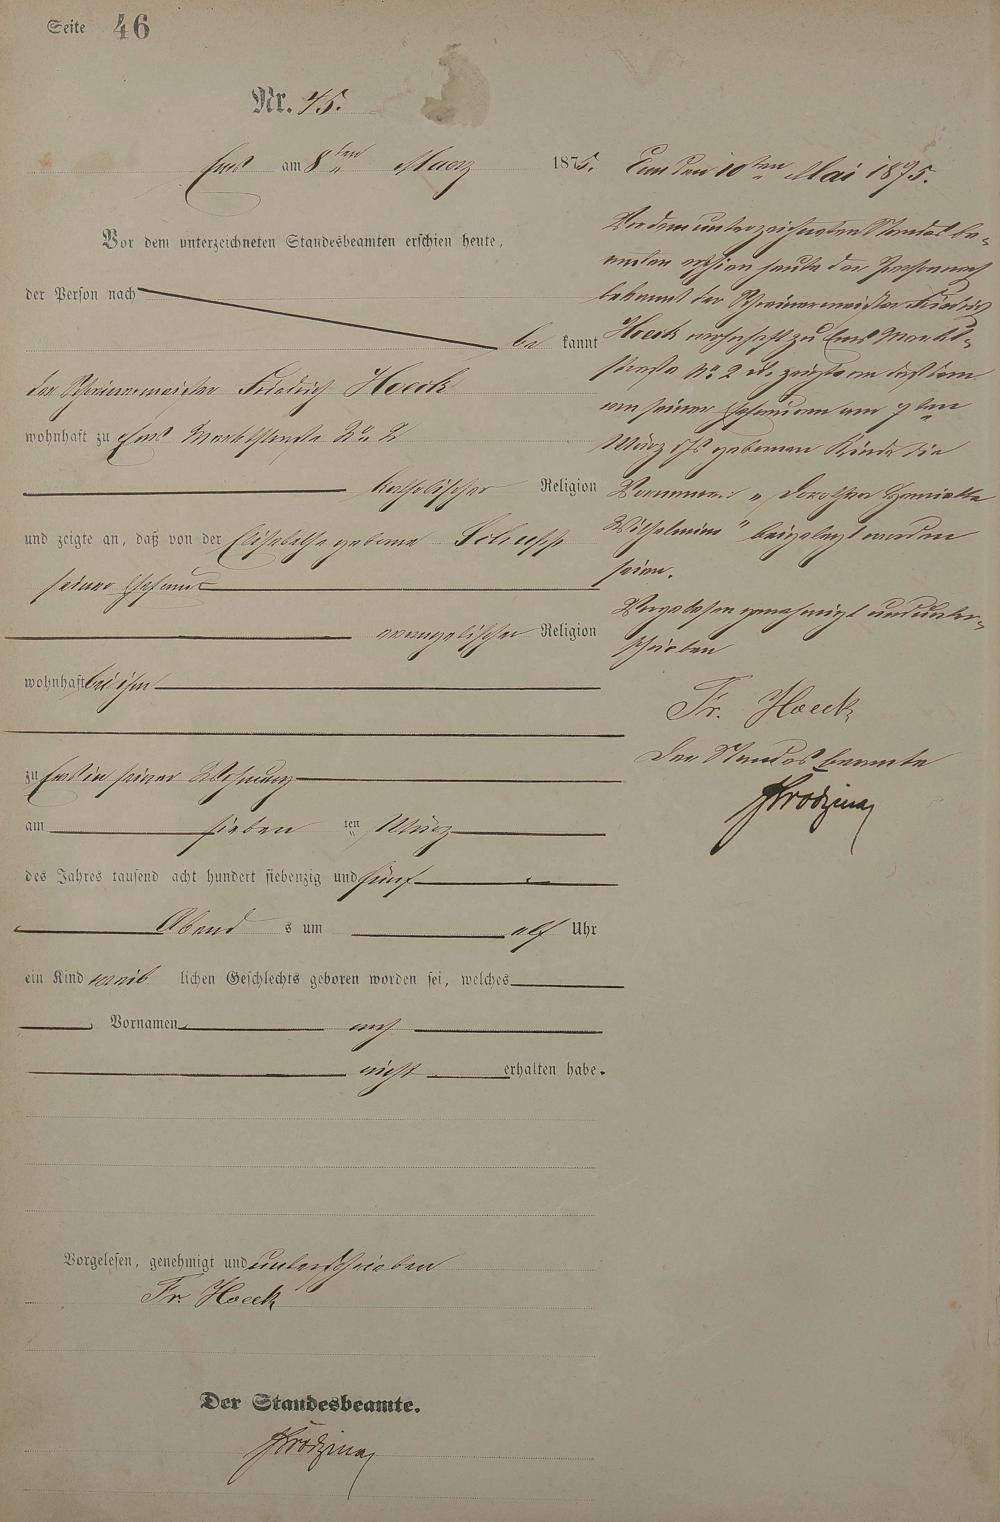 Seite 46
Nr. 45.
Ems am 8ten Maerz 1875.
Vor dem unterzeichneten Standesbeamten erschien heute,
der Person nach
be kannt
der Schreinermeister Friedrich Hoeck
wohnhaft zu Ems Marktstraße No 2
katholischer Religion
und zeigte an, daß von der Elisabetha geborne Schupp
seiner Ehefrau
evangelischer Religion
wohnhaft bei ihm
zu Ems in seiner Wohnung
am sieben ten März
des Jahres tausend acht hundert siebenzig und fünf
Abend s um elf Uhr
ein Kind weib lichen Geschlechts geboren worden sei, welches
Vornamen noch
nicht erhalten habe.
Vorgelesen, genehmigt und unterschrieben
Fr. Hoeck
Der Standesbeamte.
Ems den 10ten Mai 1875.
Vor dem unterzeichneten Standesbe-
amten erschien heute der Person nach
bekannt der Schreinermeister Friedrich
Hoeck wohnhaft zu Ems Markt-
straße No 2 und zeigte an daß dem
von seiner Ehefrau am 7ten
März geborenen Kinde die
Vornamen „Dorothea Henriette
Wilhelmine" beigelegt worden
seien.
Vorgelesen genehmigt und unter-
schrieben
Fr. Hoeck
Der Standesbeamte